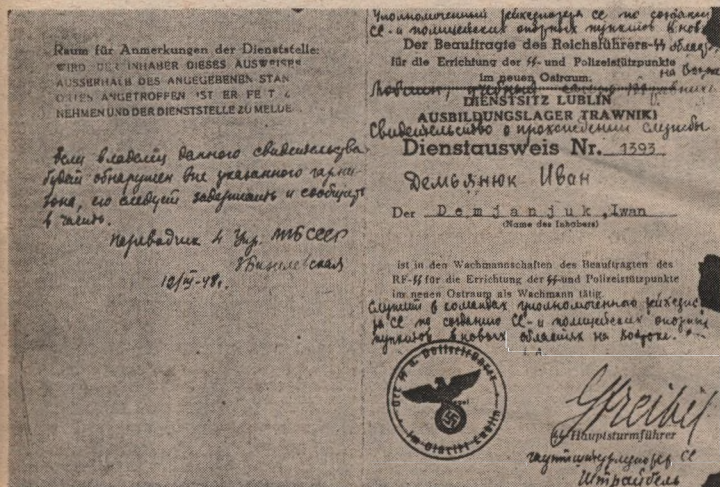 Raum für Anmerkungen der Dienststelle:
WIRD DER INHABER DIESES AUSWEISES
AUSSERHALB DES ANGEGEBENEN STAN
ORTES ANGETROFFEN IST ER FE T
NEHMEN UND DER DIENSTSTELLE ZU MELDE
Если владелец данного свидетельства
будет обнаружен вне указанного гарни-
зона, его следует задержать и сообщить
в часть.
Переводчик 4 Упр. МГБ СССР
12/III-48г.
Уполномоченный рейхсфюрера СС по созданию
СС-и полицейских опорных пунктов в новых
Der Beauftragte des Reichsführers-SS областях
für die Errichtung der SS- und Polizeistützpunkte
im neuen Ostraum. на Востоке
Люблин, учебный лагерь Травники
DIENSTSITZ LUBLIN
AUSBILDUNGSLAGER TRAWNIKI
Свидетельство о прохождении службы
Dienstausweis Nr. 1393
Демьянюк Иван
Der Demjanjuk, Iwan
(Name des Inhabers)
ist in den Wachmannschaften des Beauftragten des
RF-SS für die Errichtung der SS-und Polizeistützpunkte
im neuen Ostraum als Wachmann tätig.
Служит в командах уполномоченного рейхсфюре-
ра СС по созданию СС-и полицейских опорных
пунктов в новых областях на востоке.
Der SS u. Polizeiführer
im Distrikt Lublin
Streibel
SS-Hauptsturmführer
гауптштурмфюрер СС
Штрайбель